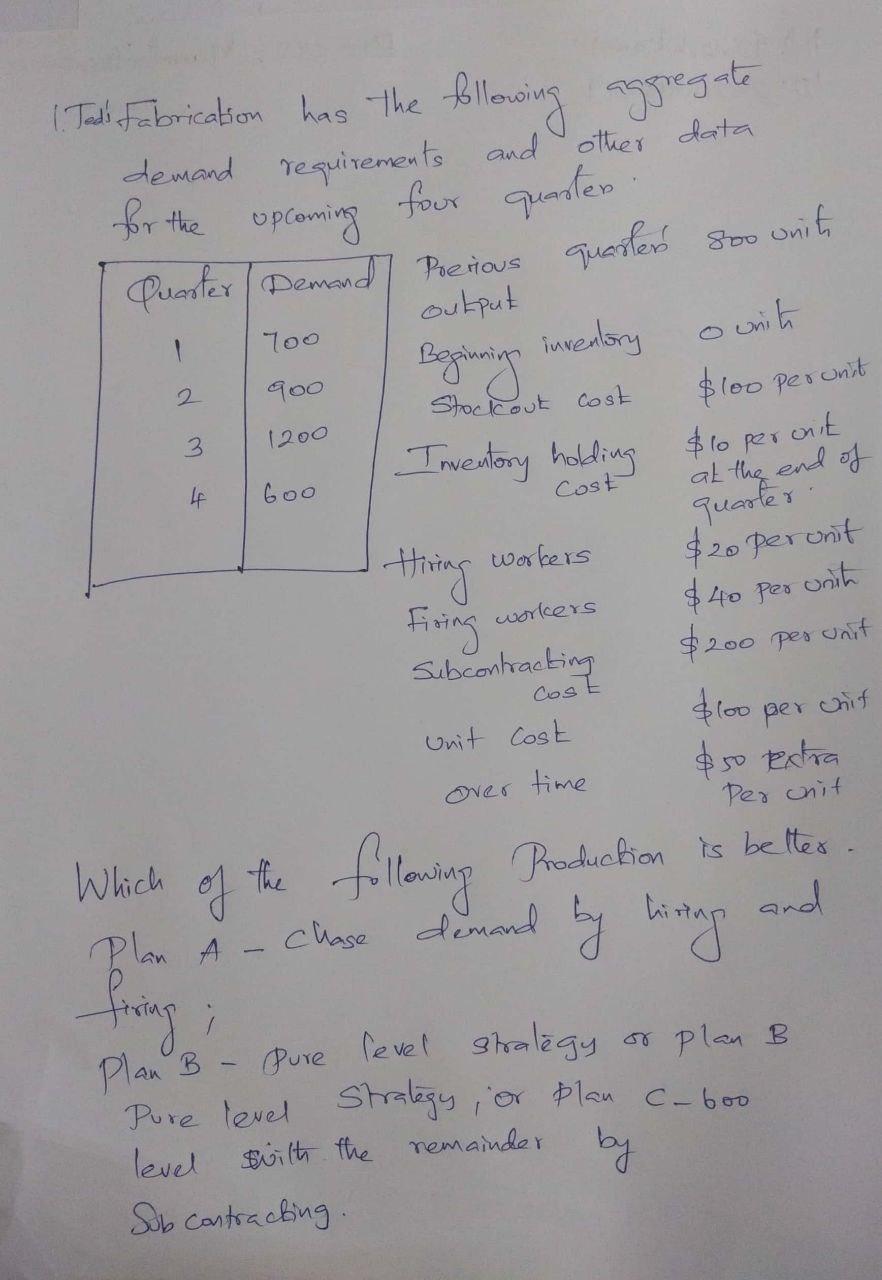 1. Ted's Fabrication has the following aggregate
demand requirements and other data
for the upcoming four quarter.
Quarter Demand
1 700
2 900
3 1200
4 600
Previous quarter's 800 unit
output
Beginning inventory 0 unit
Stockout cost $100 per unit
Inventory holding $10 per unit
cost at the end of
quarter.
Hiring workers $20 per unit
Firing workers $40 per unit
Subcontracting $200 per unit
cost
Unit cost $100 per unit
over time $50 extra
Per unit
Which of the following Production is better.
Plan A - Chase demand by hiring and
firing ;
Plan B - Pure level strategy or plan B
Pure level Strategy, or plan C - 600
level with the remainder by
Sub contracting.